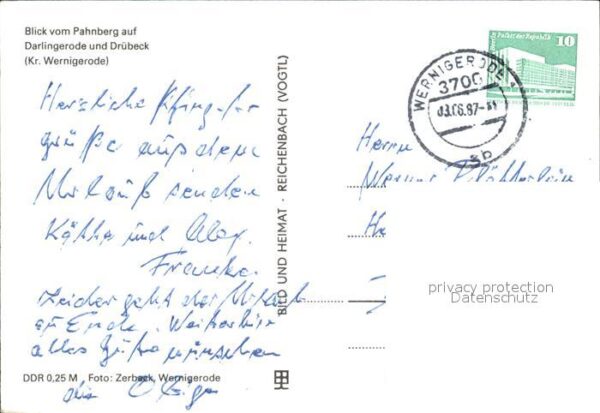 Blick vom Pahnberg auf
Darlingerode und Drübeck
(Kr. Wernigerode)
Herzliche Pfingst-
grüße aus dem
Urlaub senden
Käthe und
Franke.
Leider geht der Urlaub
zu Ende. Weiterhin
alles Gute wünschen
die
DDR 0,25 M Foto: Zerback, Wernigerode
BILD UND HEIMAT · REICHENBACH (VOGTL)
Palast der Republik
10
WERNIGERODE
3700
03.06.87
Herrn
Werner
privacy protection
Datenschutz